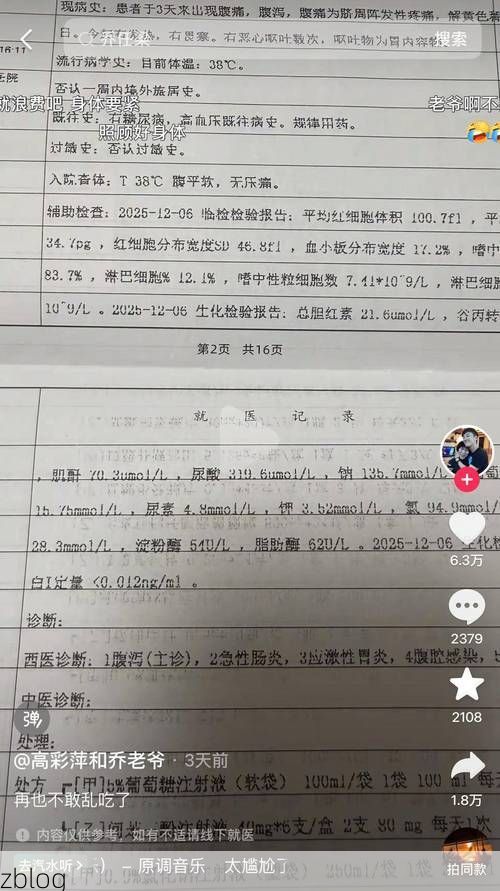 现病史：患者于3天来出现腹痛，腹泻，腹痛为脐周阵发性疼痛，解黄色
16:11
乔任梁
搜索
流行病学史：目前体温：38℃。
医院
否认一周内境外旅居史。
就浪费吧 身体要紧
老爷啊不
既往史：有糖尿病，高血压既往病史。规律用药。
照顾好身体
过敏史：否认过敏史。
入院查体：T 38℃ 腹平软，无压痛。
辅助检查：2025-12-06 临检检验报告：平均红细胞体积 100.7fl，平
34.7pg，红细胞分布宽度SD 46.8fl，血小板分布宽度 17.2%，嗜中
83.7%，淋巴细胞% 12.1%，嗜中性粒细胞数 7.41*10^9/L，淋巴细
10^9/L。2025-12-06 生化检验报告：总胆红素 21.6umol/L，谷丙转
第2页 共16页
就 医 记 录
，肌酐 70.3umol/L，尿酸 319.6umol/L，钠 135.7mmol/L
15.75mmol/L，尿素 4.8mmol/L，钾 3.52mmol/L，氯 94.9mmol/
28.3mmol/L，淀粉酶 54U/L，脂肪酶 62U/L。2025-12-06 生化检
白I定量 <0.012ng/ml。
6.3万
诊断：
2379
西医诊断：1腹泻(主诊)，2急性肠炎，3应激性胃炎，4腹腔感染，
中医诊断：
2108
弹
处理：
@高彩萍和乔老爷 · 3天前
处方 [甲]5%葡萄糖注射液（软袋） 100ml/袋 1袋 100 ml 每天
再也不敢乱吃了
1.8万
注射用 40mg*6支/盒 2支 80 mg 每天1次
内容仅供参考，如有不适请线下就医
去汽水听
- 原调音乐 太尴尬了
250ml/袋 1袋
拍同款
zblog